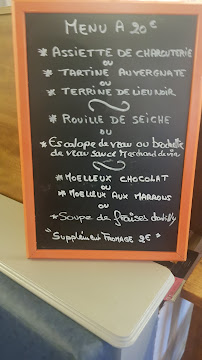 MENU A 20€
* ASSIETTE DE CHARCUTERIE
OU
* TARTINE AUVERGNATE
OU
* TERRINE DE LIEU NOIR
* ROUILLE DE SEICHE
OU
* Escalope de veau ou brochette
de veau sauce Marchand de vin
* MOELLEUX CHOCOLAT
OU
* MOELLEUX AUX MARRONS
OU
* Soupe de fraises
"Supplément FROMAGE 2€"